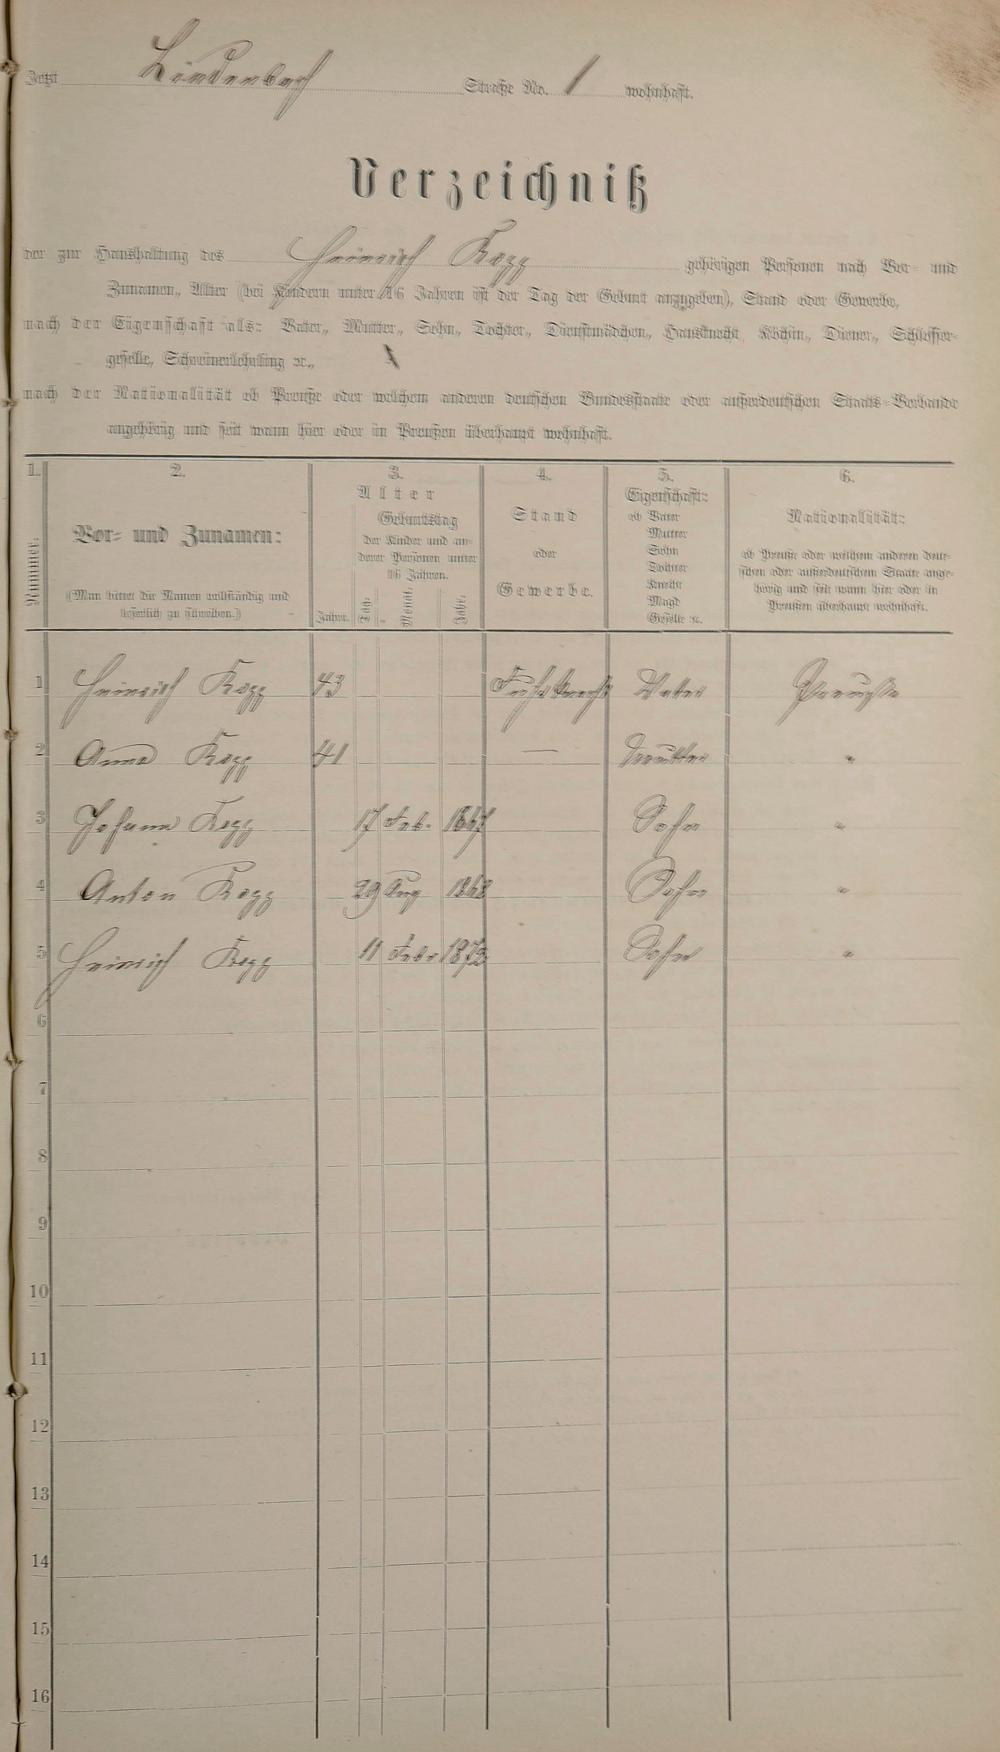 Jetzt Lindenbach Straße No. 1 wohnhaft.
Verzeichniß
der zur Haushaltung des Heinrich gehörigen Personen nach Vor- und
Zunamen, Alter (bei Kindern unter 16 Jahren ist der Tag der Geburt anzugeben), Stand oder Gewerbe,
nach der Eigenschaft als: Vater, Mutter, Sohn, Tochter, Dienstmädchen, Hausknecht, Köchin, Diener, Schlosser-
geselle, Schreinerlehrling ꝛc.,
nach der Nationalität ob Preuße oder welchem anderen deutschen Bundesstaate oder außerdeutschen Staats-Verbande
angehörig und seit wann hier oder in Preußen überhaupt wohnhaft.
1. 2. 3. 4. 5. 6.
Nummer.
Vor- und Zunamen:
(Man bittet die Namen vollständig und
leserlich zu schreiben.)
Alter
Geburtstag
der Kinder und an-
derer Personen unter
16 Jahren.
Jahre. Tag. Monat. Jahr.
Stand
oder
Gewerbe.
Eigenschaft:
ob Vater
Mutter
Sohn
Tochter
Knecht
Magd
Geselle ꝛc.
Nationalität:
ob Preuße oder welchem anderen deut-
schen oder außerdeutschem Staate ange-
hörig und seit wann hier oder in
Preußen überhaupt wohnhaft.
1 Heinrich 43 Fuhrknecht Vater Preuße
2 Anna 41 — Mutter "
3 Johann 17 Feb. 1867 Sohn "
4 Anton 29 Aug 1868 Sohn "
5 Heinrich 11 Febr 1873 Sohn "
6
7
8
9
10
11
12
13
14
15
16